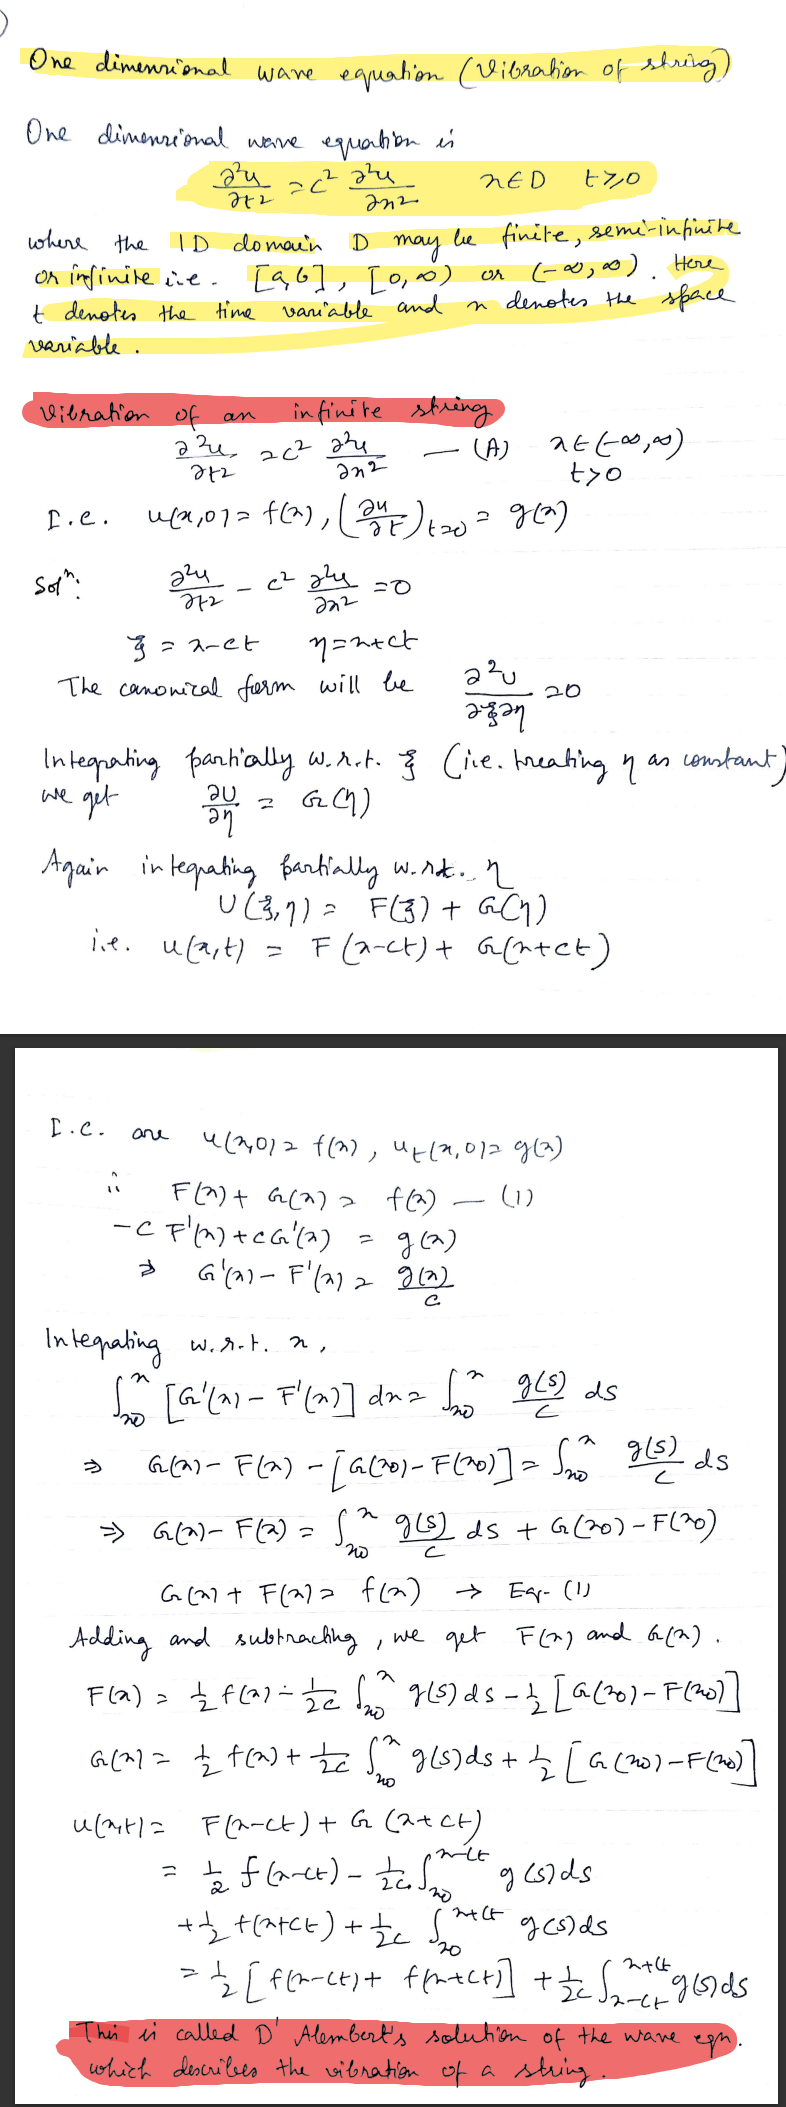 One dimensional wave equation (Vibration of string)
One dimensional wave equation is
∂²u/∂t² = c² ∂²u/∂x²   x∈D   t≥0
where the 1D domain D may be finite, semi-infinite
or infinite i.e. [a,b], [0,∞) or (-∞,∞). Here
t denotes the time variable and x denotes the space
variable.
Vibration of an infinite string
∂²u/∂t² = c² ∂²u/∂x² — (A)   x∈(-∞,∞)
t>0
I.c. u(x,0) = f(x), (∂u/∂t)t=0 = g(x)
Solⁿ: ∂²u/∂t² - c² ∂²u/∂x² = 0
ξ = x-ct   η = x+ct
The canonical form will be ∂²U/∂ξ∂η = 0
Integrating partially w.r.t. ξ (i.e. treating η as constant)
we get ∂U/∂η = G(η)
Again integrating partially w.r.t. η
U(ξ,η) = F(ξ) + G(η)
i.e. u(x,t) = F(x-ct) + G(x+ct)
I.C. are u(x,0) = f(x), ut(x,0) = g(x)
∴ F(x) + G(x) = f(x) — (1)
-c F'(x) + cG'(x) = g(x)
⇒ G'(x) - F'(x) = g(x)/c
Integrating w.r.t. x,
∫x0^x [G'(x) - F'(x)] dx = ∫x0^x g(s)/c ds
⇒ G(x) - F(x) - [G(x0) - F(x0)] = ∫x0^x g(s)/c ds
⇒ G(x) - F(x) = ∫x0^x g(s)/c ds + G(x0) - F(x0)
G(x) + F(x) = f(x) → Eq- (1)
Adding and subtracting, we get F(x) and G(x).
F(x) = 1/2 f(x) - 1/2c ∫x0^x g(s) ds - 1/2 [G(x0) - F(x0)]
G(x) = 1/2 f(x) + 1/2c ∫x0^x g(s) ds + 1/2 [G(x0) - F(x0)]
u(x,t) = F(x-ct) + G(x+ct)
= 1/2 f(x-ct) - 1/2c ∫x0^x-ct g(s) ds
+ 1/2 f(x+ct) + 1/2c ∫x0^x+ct g(s) ds
= 1/2 [f(x-ct) + f(x+ct)] + 1/2c ∫x-ct^x+ct g(s) ds
This is called D'Alembert's solution of the wave eqn.
which describes the vibration of a string.